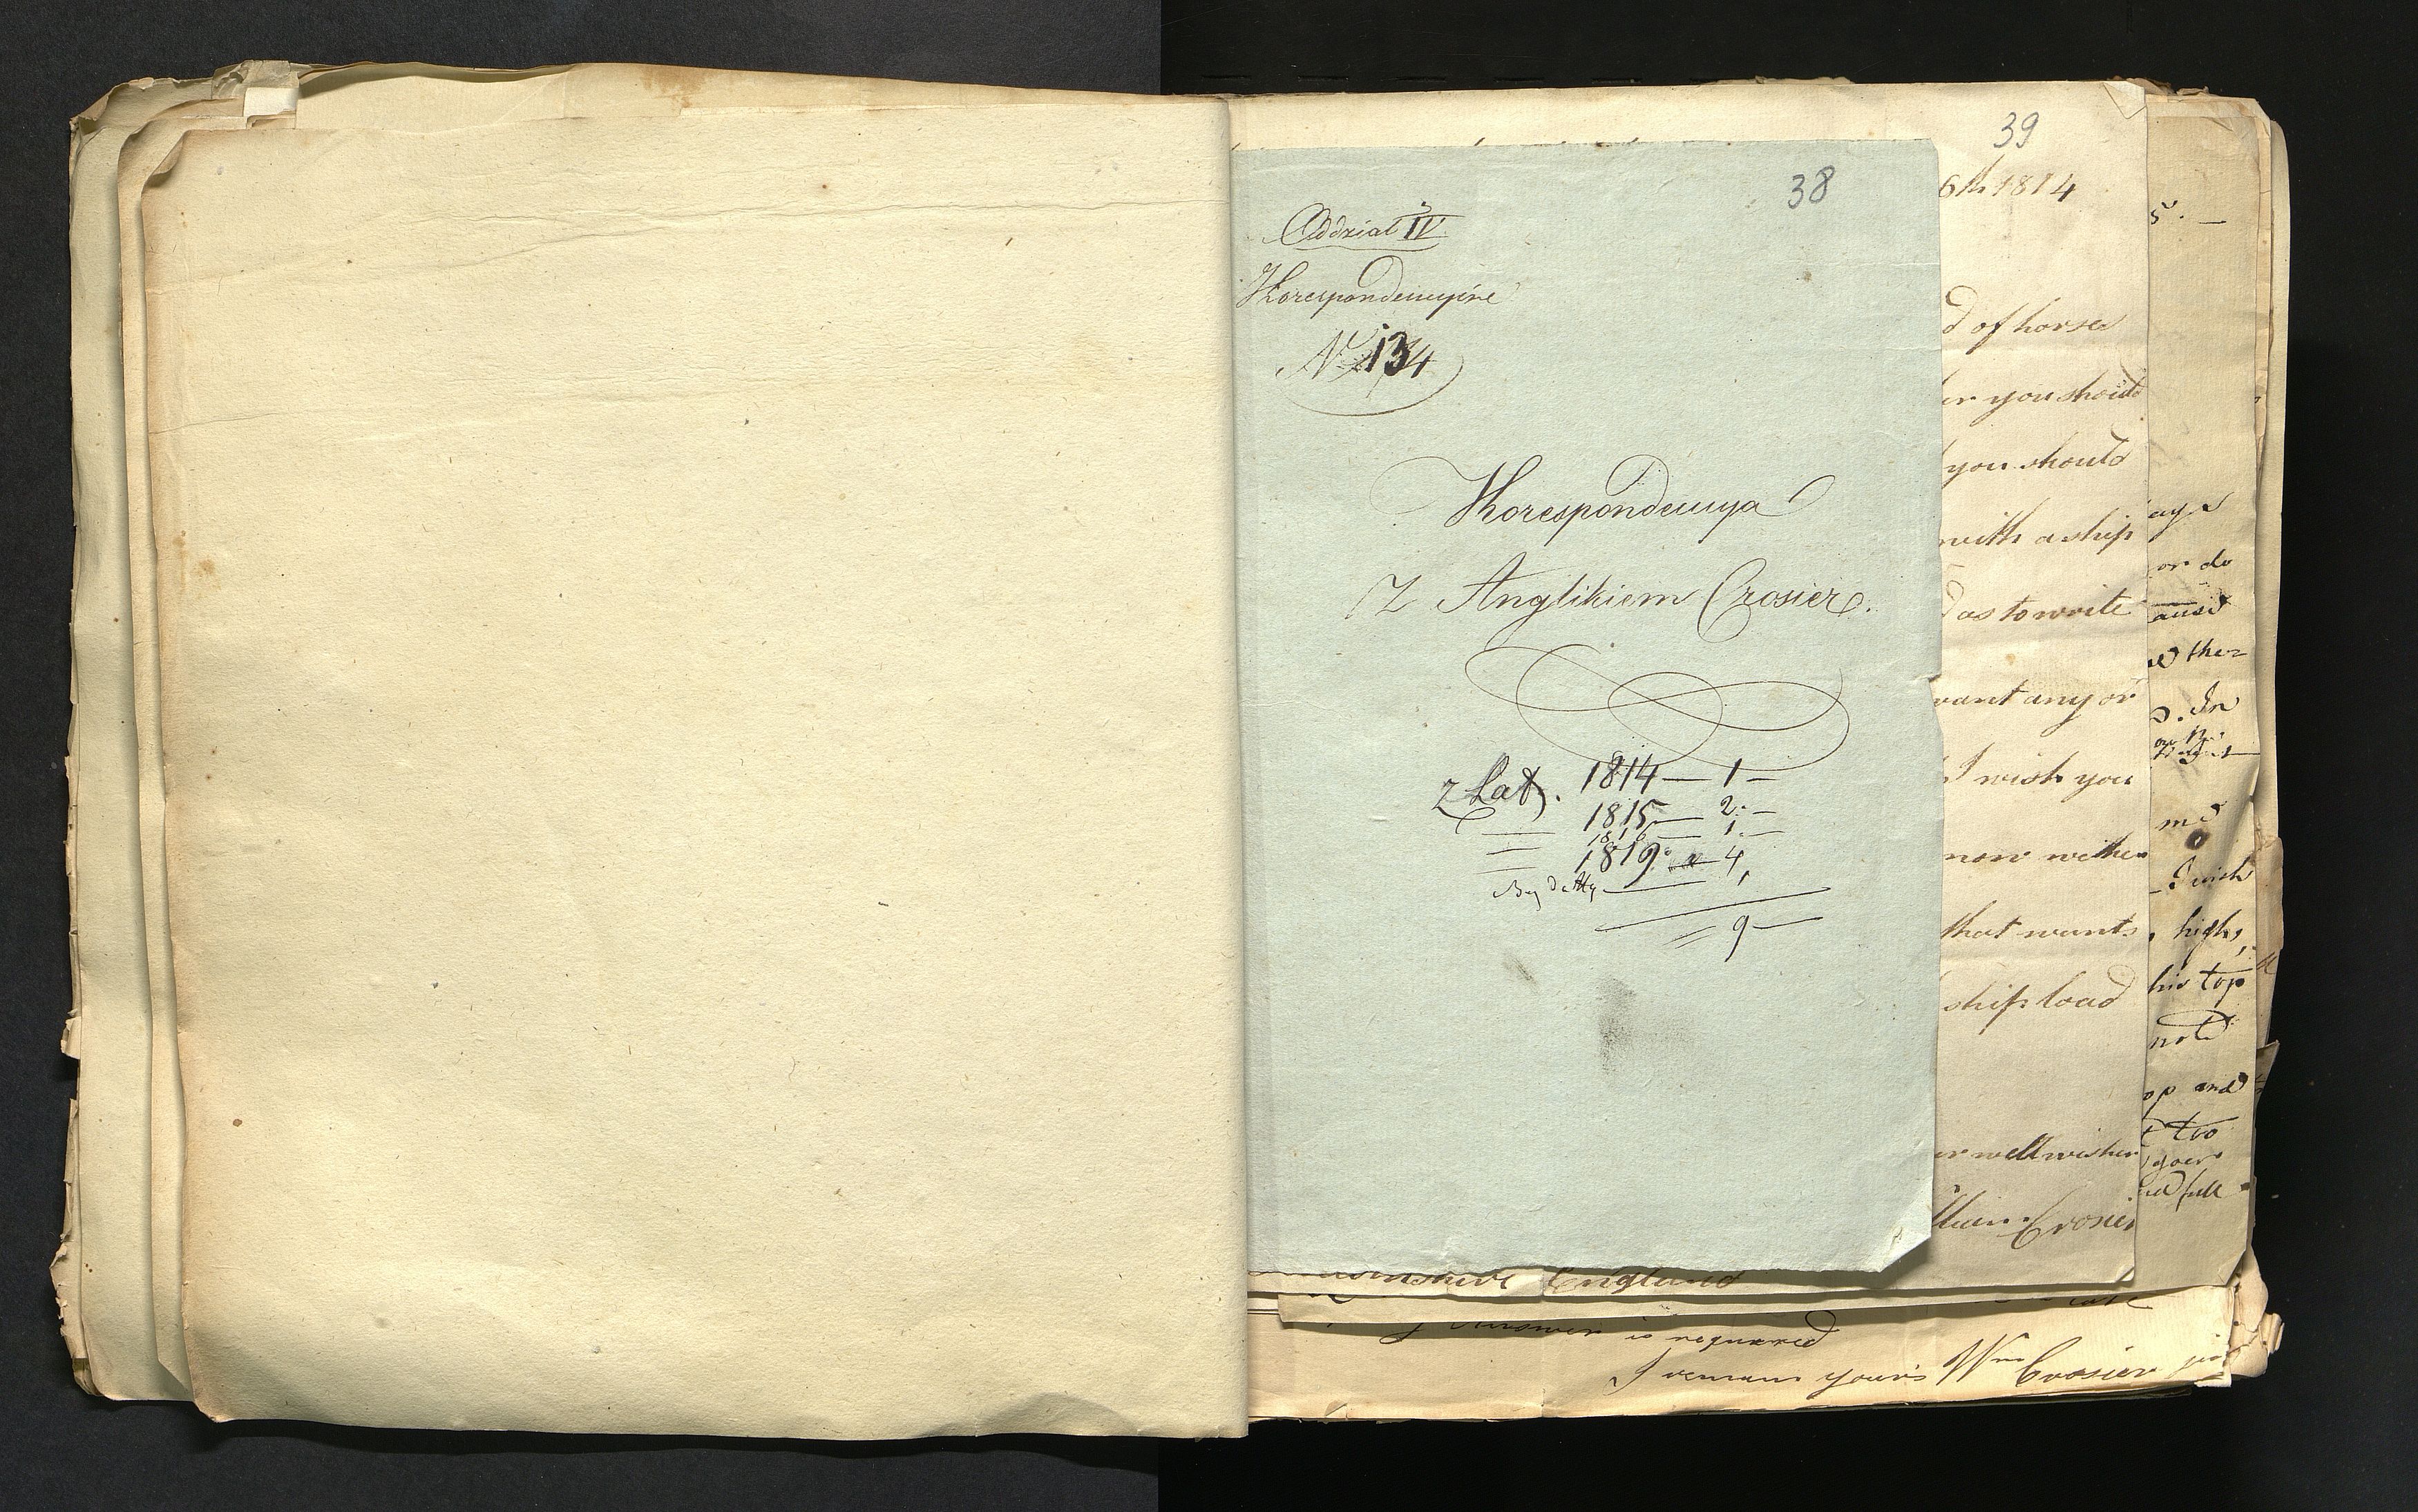 38
Oddział IV
Korespondencyine
N 134
Korespondencya
Z Anglikiem Crosier.
z Lat. 1814 — 1 —
— 1815 — 2. —
— 1816 — 1. —
— 1819. — 4,
Bez daty
= 9 —
39
6th 1814
d of horses
er you should
you should
with a ship
d as to write
want any or
I wish you
now wether
that wants
ship load
er well wisher
lliam Crosier
England
5. —
ays
or do
ause
ther
. In
md
I wish
high,
his top
not
op and
too
full
Answer is required
I remain yours Wm Crosier